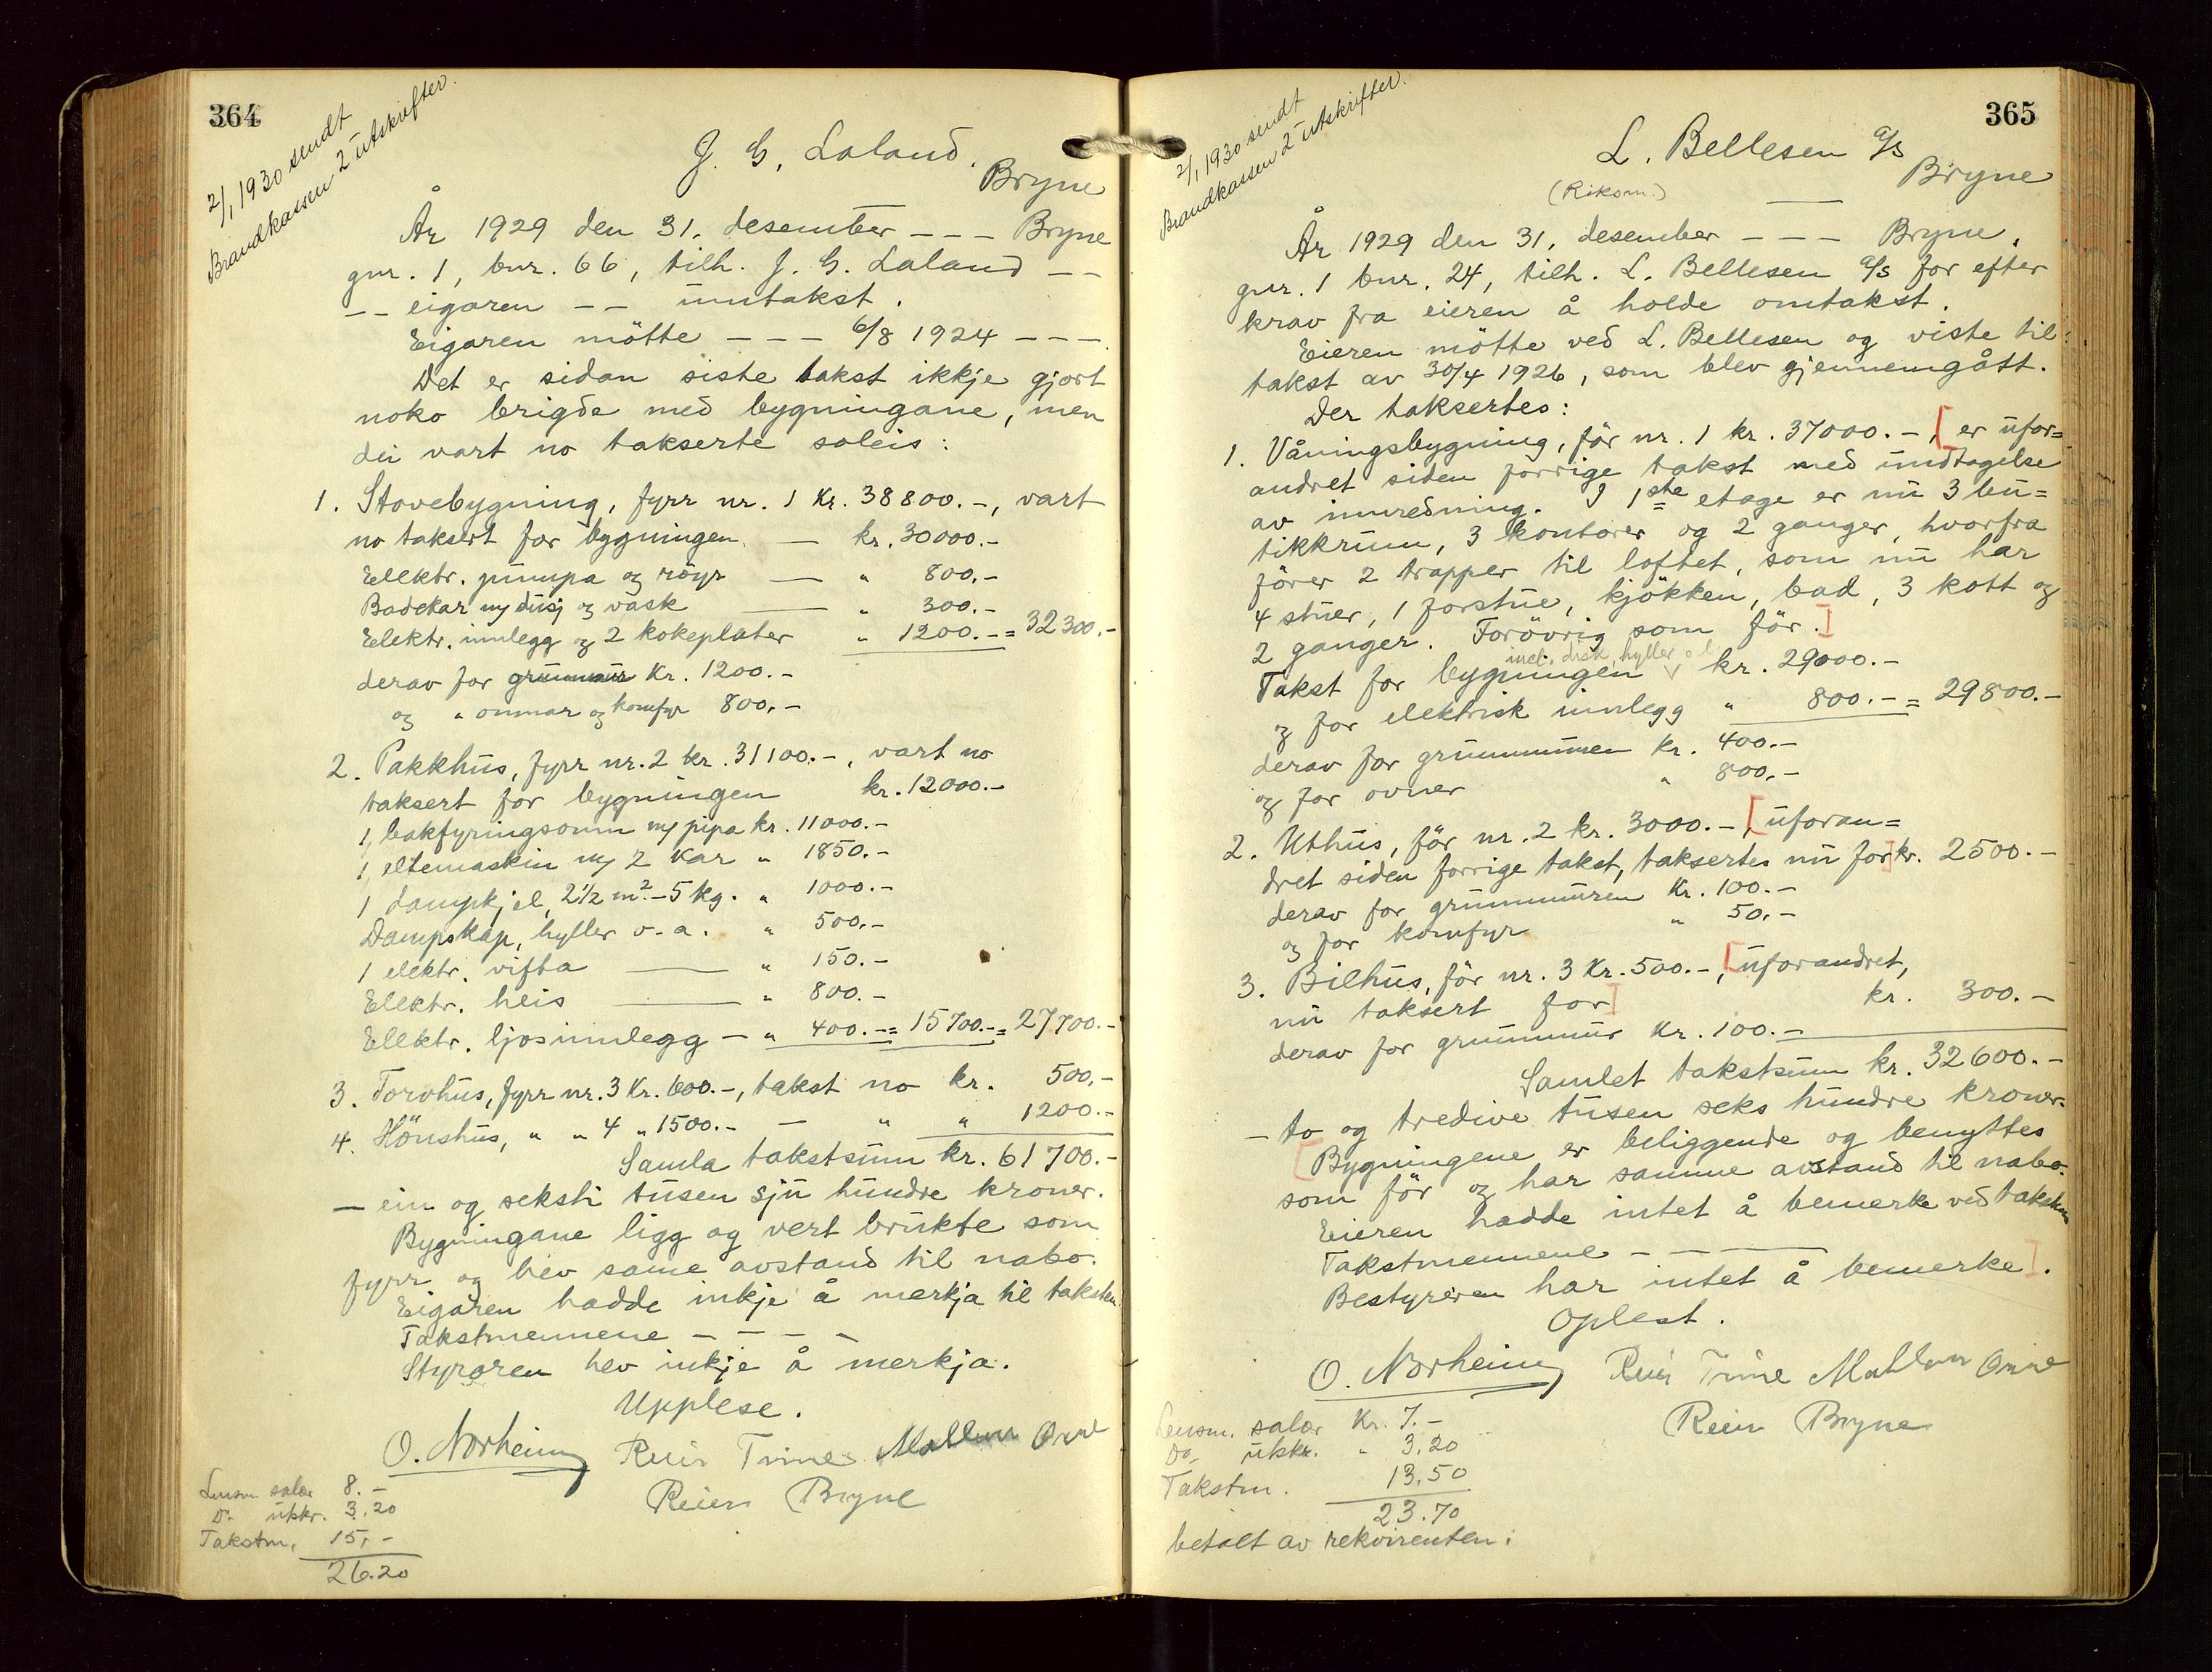 364
2/1 1930 sendt
Brandkassen 2 utskrifter.
J. G. Laland.
Bryne
År 1929 den 31. desember - - - Bryne
gnr. 1, bnr. 66, tilh. J. G. Laland - -
- - eigaren - - umtakst.
Eigaren mötte - - - 6/8 1924 - - -.
Det er sidan siste takst ikkje gjort
noko brigde med bygningane, men
dei vart no takserte soleis:
1. Stovebygning, fyrr nr. 1 Kr. 38800.-, vart
no taksert for bygningen. — kr. 30000.-
Elektr. pumpa og röyr — " 800.-
Badekar m/dusj og vask — " 300.-
Elektr. innlegg og 2 kokeplater " 1200.- = 32300.-
derav for grunnmur Kr. 1200.-
og " omnar og komfyr 800.-
2. Pakkhus, fyrr nr. 2 kr. 31100.-, vart no
taksert for bygningen kr. 12000.-
1 bakfyringsomn m/ pipa kr. 11000.-
1 eltemaskin m/ 2 kar " 1850.-
1 dampkjel, 2½ m² - 5 kg. " 1000.-
Dampskåp, hyller o. a. " 500.-
1 elektr. vifta — " 150.-
Elektr. heis — " 800.-
Elektr. ljosinnlegg - " 400.- = 15700.- = 27700.-
3. Torvhus, fyrr nr. 3 Kr. 600.-, takst no kr. 500.-
4. Hönshus, " " 4 " 1500.- — " " 1200.-
Samla takstsum kr. 61700.-
— ein og seksti tusen sju hundre kroner.
Bygningane ligg og vert brukte som
fyrr og hev same avstand til nabo.
Eigaren hadde inkje å merkja til taksten
Takstmennene - - - -
Styraren hev inkje å merkja.
Upplese.
O. Norheim Reier Trine Mathias Orre
Reier Bryne
Lensm. salær 8.-
Do utskr. 3.20
Takstm. 15.-
26.20
365
2/1 1930 sendt
Brandkassen 2 utskrifter.
L. Bellesen a/s
(Riksm.)
Bryne
År 1929 den 31. desember - - - Bryne,
gnr. 1 bnr. 24, tilh. L. Bellesen a/s for efter
krav fra eieren å holde omtakst.
Eieren mötte ved L. Bellesen og viste til
takst av 30/4 1926, som blev gjennemgått.
Der taksertes:
1. Våningsbygning, för nr. 1 kr. 37000.-, [er ufor=
andret siden forrige takst med undtagelse
av innredning. I 1ste etage er nu 3 bu=
tikkrum, 3 kontorer og 2 ganger, hvorfra
förer 2 trapper til loftet, som nu har
4 stuer, 1 forstue, kjökken, bad, 3 kott og
2 ganger. Forövrig som för.]
incl. disk, hyller
Takst for bygningen kr. 29000.-
og for elektrisk innlegg " 800.- = 29800.-
derav for grunnmuren kr. 400.-
og for ovner " 800.-
2. Uthus, för nr. 2 kr. 3000.-, [uforan=
dret siden forrige takst, taksertes nu for] kr. 2500.-
derav for grunnmuren Kr. 100.-
og for komfyr " 50.-
3. Bilhus, för nr. 3 Kr. 500.-, [uforandret,
nu taksert for] kr. 300.-
derav for grunnmur Kr. 100.-
Samlet takstsum kr. 32600.-
- to og tredive tusen seks hundre kroner.
[Bygningene er beliggende og benyttes
som för og har samme avstand til nabo.
Eieren hadde intet å bemerke ved taksten
Takstmennene - - —
Bestyreren har intet å bemerke].
Oplest.
O. Norheim Reier Trine Mathias Orre
Reier Bryne
Lensm. salær Kr. 7.-
Do utskr. " 3.20
Takstm. 13.50
23.70
betalt av rekvirenten.